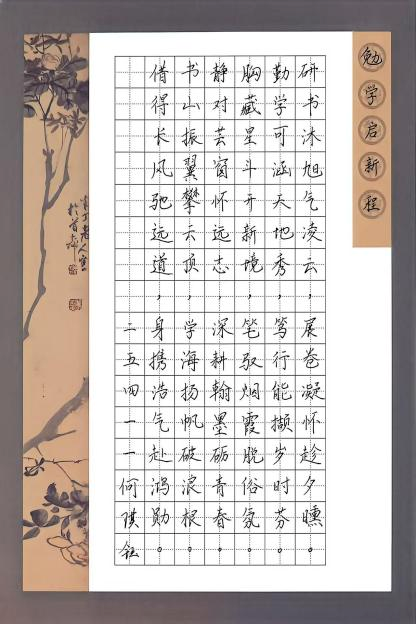 勉学启新程
研书沐旭气凌云，展卷凝怀趁夕曛。
勤学可涵天地秀，笃行能撷岁时芬。
胸藏星斗开新境，笔驭烟霞脱俗氛。
静对芸窗怀远志，深耕翰墨砺青春。
书山振翼攀云顶，学海扬帆破浪根。
借得长风驰远道，身携浩气赴鸿勋。
二五四一一何琪钰